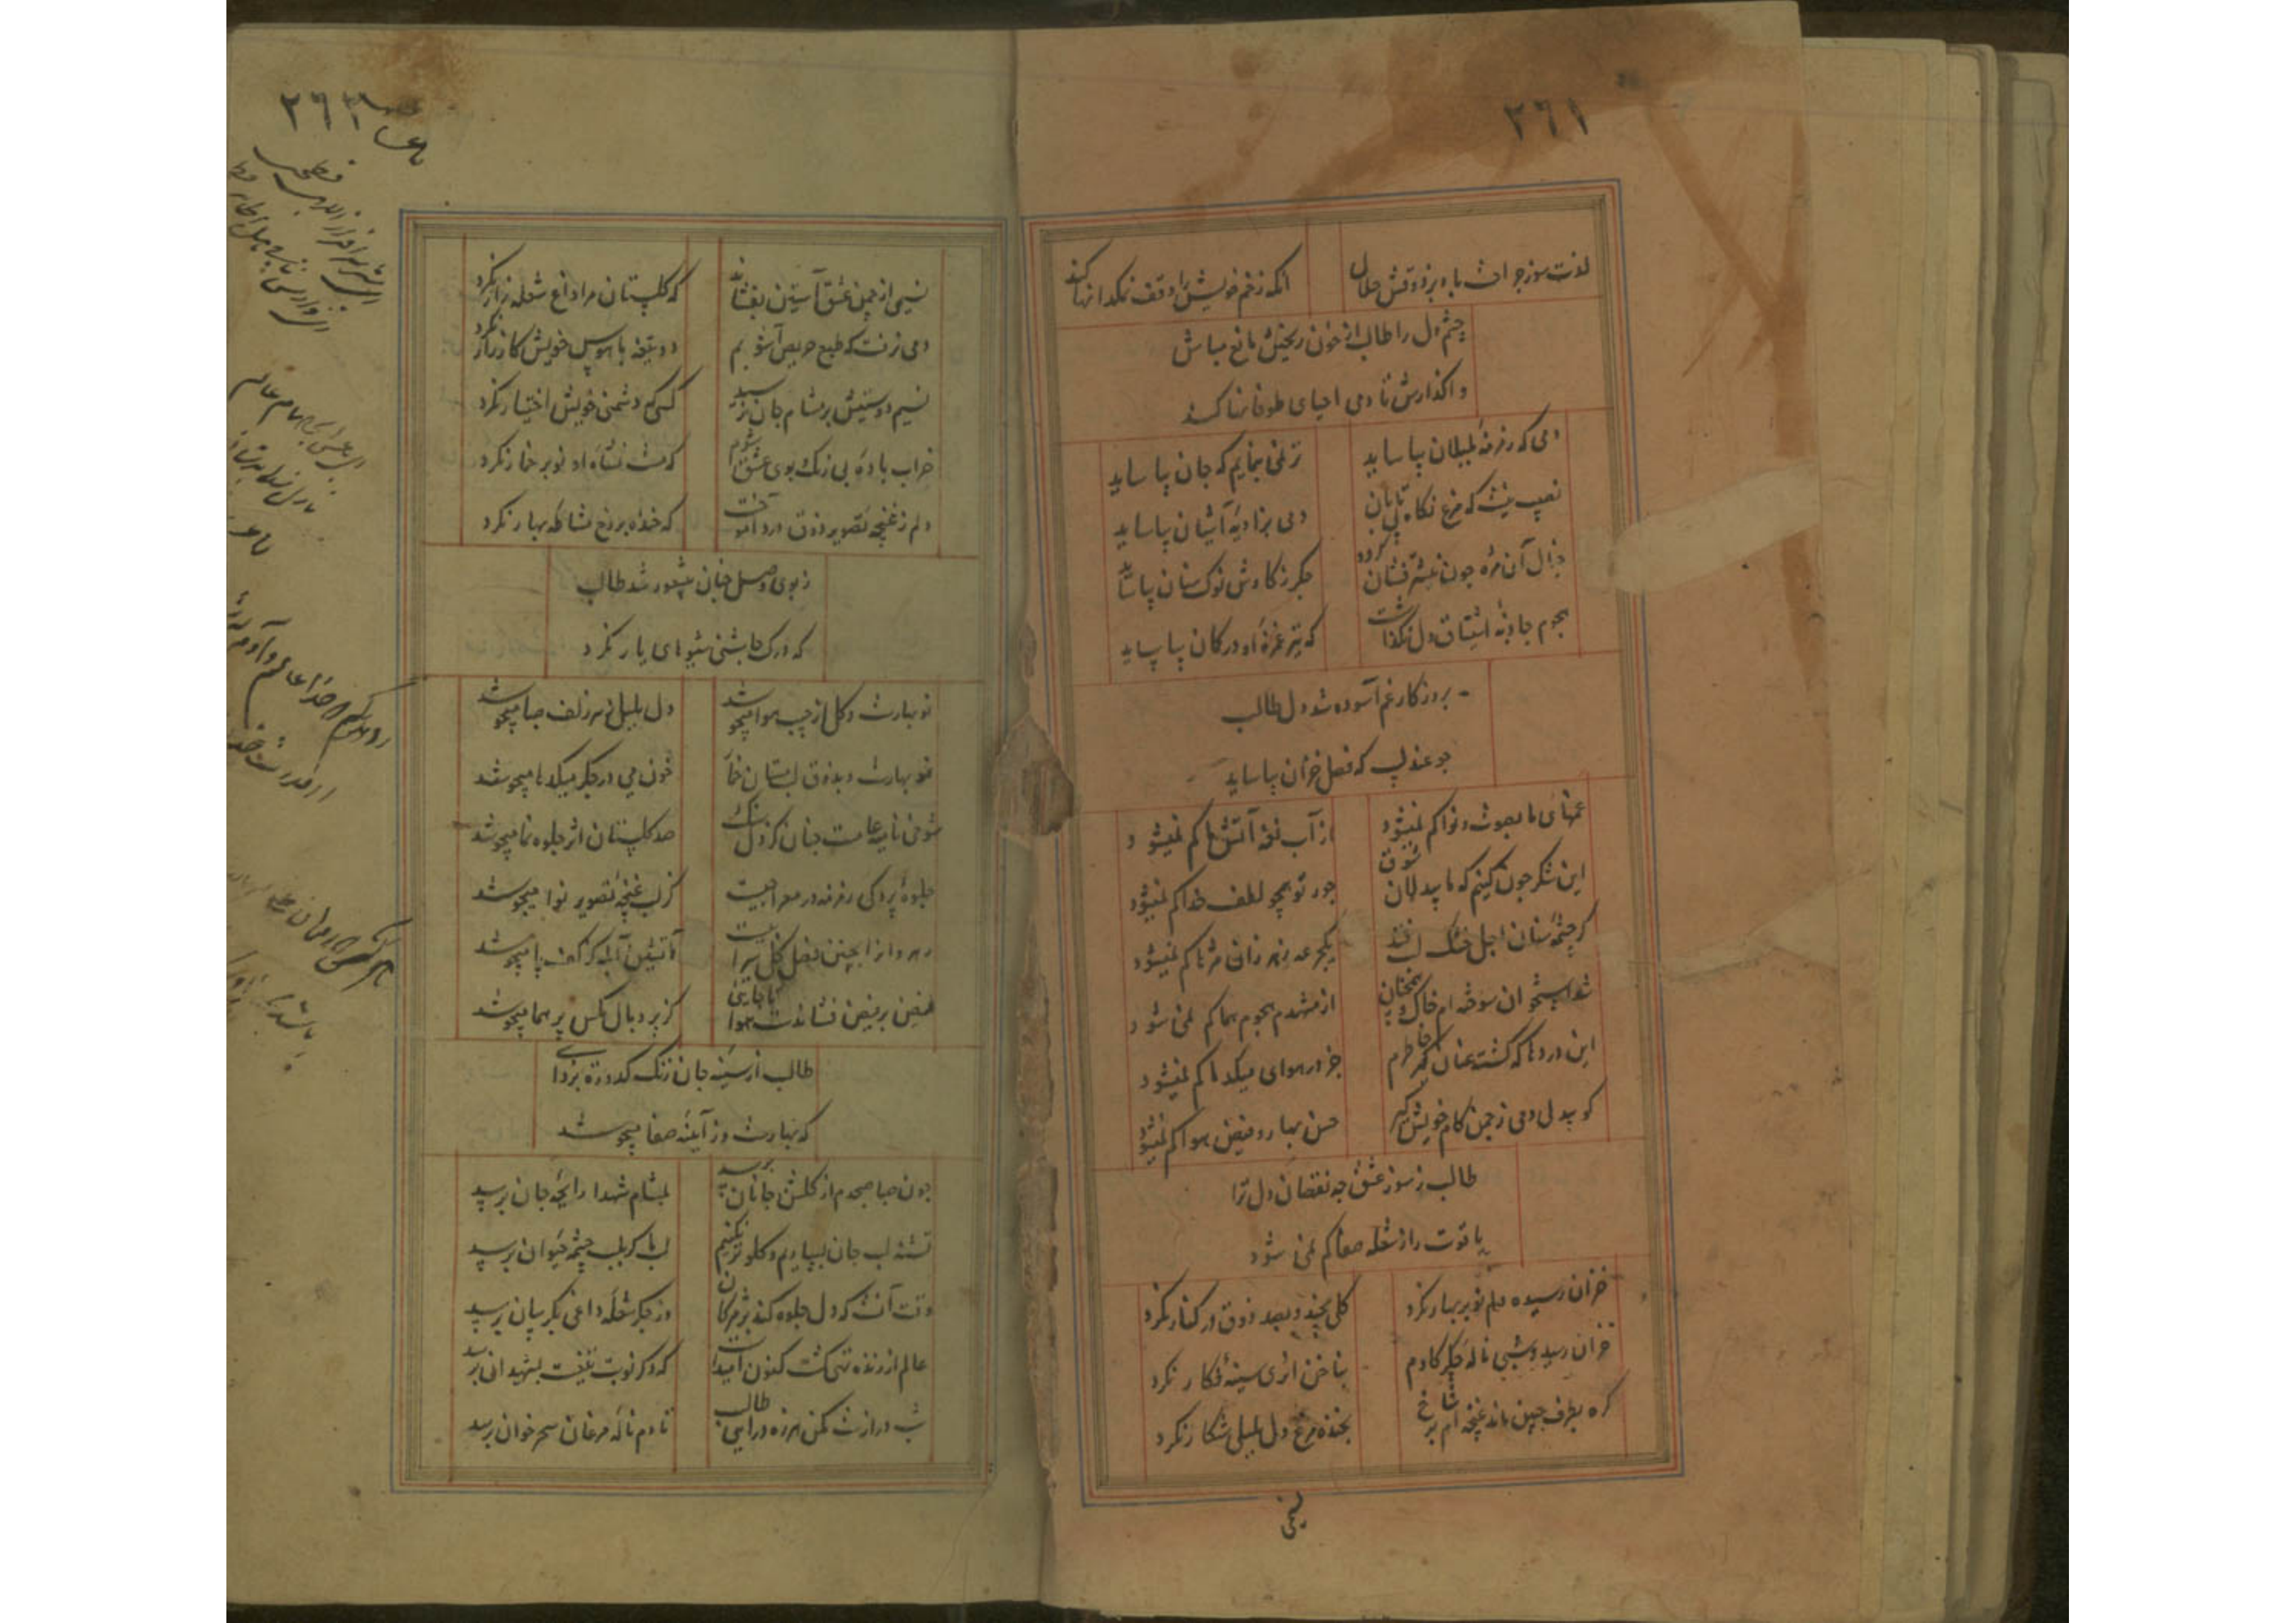 ٢٦١
لذت سوز جراحت باد بر ذوقش حلال
انکه زخم خویش را وقف نمکدانها کند
چشم دل را طالب از خون ریختن مانع مباش
واکذارش تا دمی احیای طوفانها کند
دمی که زمزمهٔ بلبلان بیاساید
ترنمی بنمایم که جان بیاساید
نصیب نیست که مرغ نکاه بی تابان
دمی بزاویهٔ آشیان بیاساید
خیال آن مژه چون نیشتر فشان کردد
جکر ز کاوش نوک سنان بیاساید
هجوم جاذبهٔ اشتیاق دل نکذاشت
که تیر غمزهٔ او در کمان بیاساید
بروزکار غم آسوده شد دل طالب
جو عندلیب که فصل خزان بیاساید
غمهای ما بصوت و نوا کم نمیشود
از آب نغمه آتش ما کم نمیشود
این شکر چون کنیم که با بیدلان شوق
جور تو همچو لطف خدا کم نمیشود
کر چشمه سنان اجل خشک لب فتد
یکجرعه زهر زان مژها کم نمیشود
شد استخوان سوخته ام خاک و همچنان
از مشهدم هجوم هما کم نمی شود
این دردها که کشته عنان کیر خاطرم
جز در هوای میکدها کم نمیشود
کو بیدل دمی ز چمن کام خویش کیر
حسن بهار و فیض هوا کم نمیشود
طالب ز سوز عشق چه نقصان دل ترا
یاقوت را ز شعله صفا کم نمی شود
خزان رسیده دلم نوبر بهار نکرد
کلی نچید و بصد ذوق در کنار نکرد
خزان رسید و شبی نالهٔ جکر کاوم
بناخن اثری سینهٔ فکار نکرد
کره بطرف جبین ماند غنچه ام بر شاخ
بخنده مرغ دل بلبلی شکار نکرد
نسیمی
٢٦٢
نسیمی از چمن عشق آستین نفشاند
که کلستان مرا داغ شعله زار نکرد
دمی نرفت که طبع حریص آشوبم
دو تیغه با هوس خویش کارزار نکرد
نسیم دوستیش بر مشام جان نرسید
کسی که دشمنی خویش اختیار نکرد
خراب بادهٔ بی رنک و بوی عشق شوم
که مست نشأهٔ او نوبر خمار نکرد
دلم ز غنچهٔ تصویر ذوق درد آموخت
که خنده بر رخ مشاطهٔ بهار نکرد
ز بوی وصل چنان بیشعور شد طالب
که درک چاشنی شیوهای یار نکرد
نوبهارست و کل از جیب هوا میجوشد
دل بلبل ز سر زلف صبا میجوشد
نوبهارست و بذوق لب مستان خمار
خون می در جکر میکدها میجوشد
شوخی نامیه عامست چنان کز دل سنک
صد کلستان اثر جلوه نما میجوشد
جلوهٔ پردکی زمزمه در معراجیست
کز لب غنچهٔ تصویر نوا میجوشد
رهروانرا بچنین فصل کل پیرائیست
آتشین آبله کز کف پا میجوشد
فیض بر فیض فشاندست هوا تا جائی
کز پر و بال مکس پر هما میجوشد
طالب از سینهٔ جان زنک کدورت بزدای
که بهارست و ز آیینه صفا میجوشد
چون صبا صبحدم از کلشن جانان برسید
بمشام شهدا رایحهٔ جان برسید
تشنه لب جان بسپاریم و کلو تر نکنیم
لب ما کر بلب چشمهٔ حیوان برسید
وقت آنست که دل جلوه کند بر مژکان
وز جکر شعلهٔ داغی بکریبان برسید
عالم از زنده تهی کشت کنون امیدست
که دکر نوبت تیغت بشهیدان برسید
شب درازست مکن هرزه درایی طالب
تا دم نالهٔ مرغان سحرخوان برسد